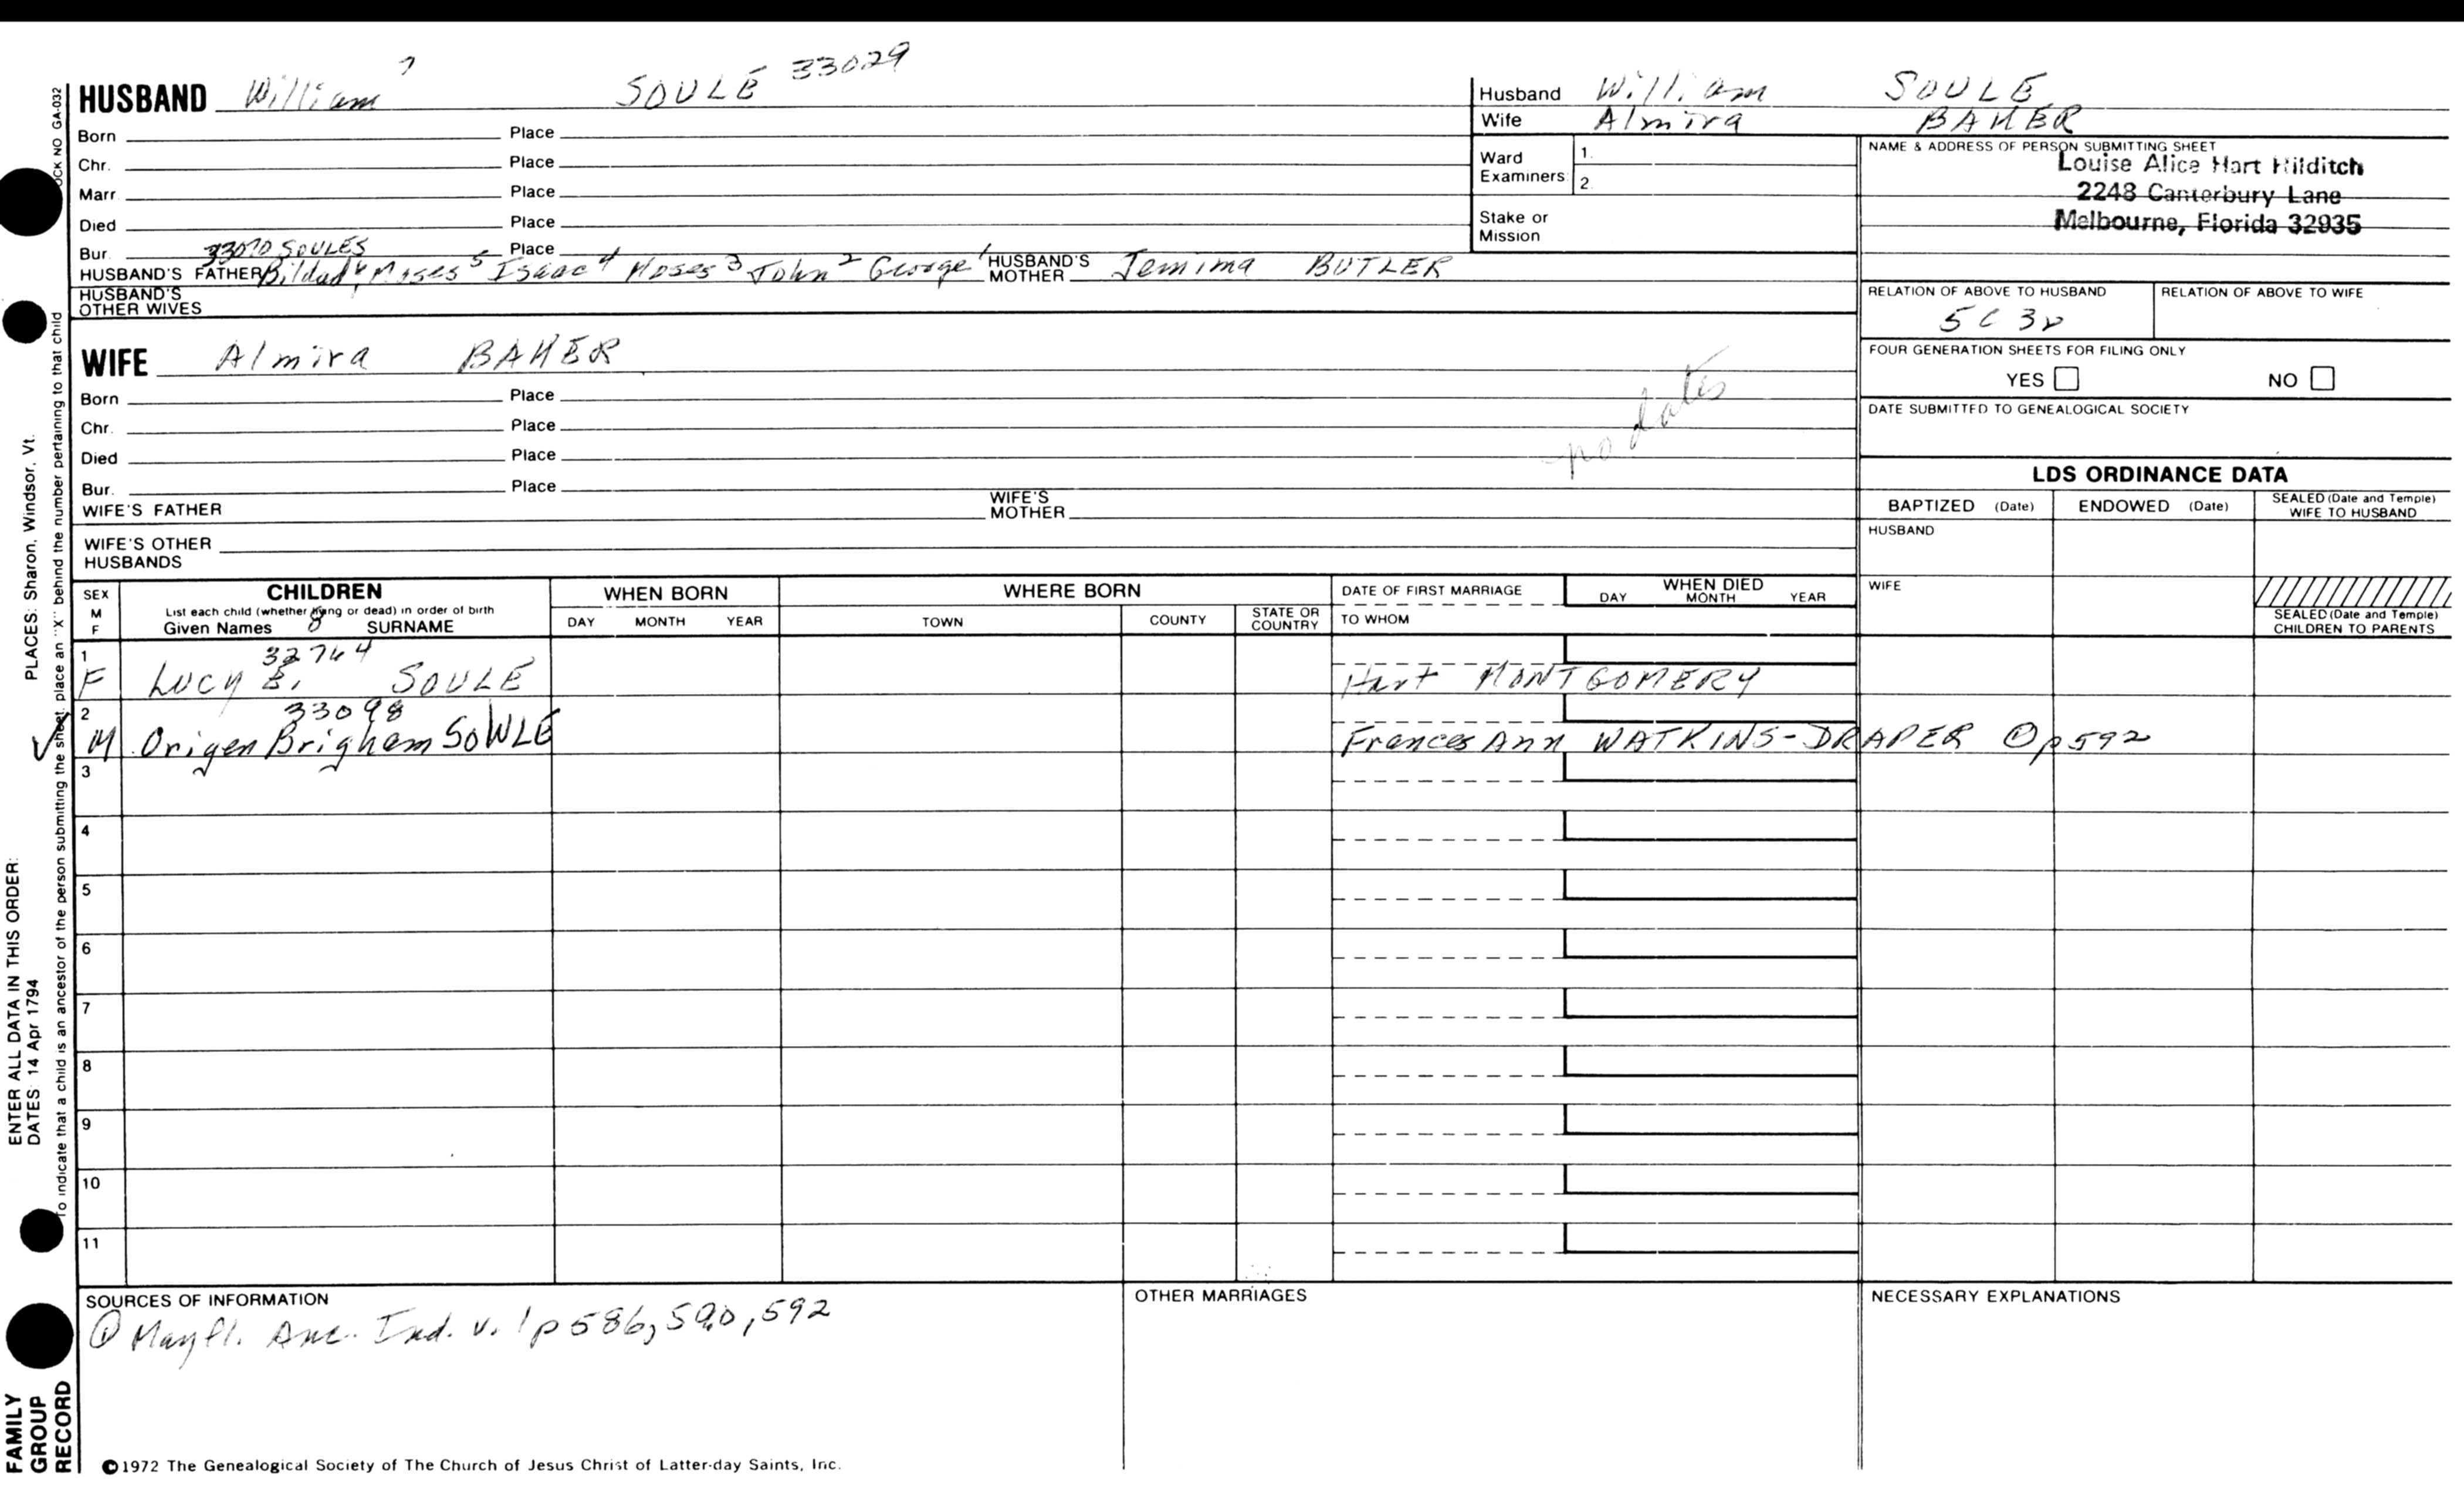 HUSBAND William 7 SOULE 33029
Born Place
Chr. Place
Marr. Place
Died Place
Bur. 33070 SOULES Place
HUSBAND'S FATHER Bildad 6 Moses 5 Isaac 4 Moses 3 John 2 George 1 HUSBAND'S MOTHER Jemima BUTLER
HUSBAND'S OTHER WIVES
Husband William SOULE
Wife Almira BAKER
Ward Examiners 1. 2.
Stake or Mission
NAME & ADDRESS OF PERSON SUBMITTING SHEET
Louise Alice Hart Hilditch
2248 Canterbury Lane
Melbourne, Florida 32935
RELATION OF ABOVE TO HUSBAND RELATION OF ABOVE TO WIFE
5C 3r
FOUR GENERATION SHEETS FOR FILING ONLY
YES NO
DATE SUBMITTED TO GENEALOGICAL SOCIETY
WIFE Almira BAKER
Born Place
Chr. Place
Died Place
Bur. Place
no dates
WIFE'S FATHER WIFE'S MOTHER
WIFE'S OTHER HUSBANDS
LDS ORDINANCE DATA
BAPTIZED (Date) ENDOWED (Date) SEALED (Date and Temple) WIFE TO HUSBAND
HUSBAND
WIFE
SEALED (Date and Temple) CHILDREN TO PARENTS
SEX M F
CHILDREN
List each child (whether living or dead) in order of birth
Given Names 8 SURNAME
WHEN BORN
DAY MONTH YEAR
WHERE BORN
TOWN COUNTY STATE OR COUNTRY
DATE OF FIRST MARRIAGE
TO WHOM
WHEN DIED
DAY MONTH YEAR
1 32764
F Lucy E. SOULE Hart MONTGOMERY
2 33098
✓ M Origen Brigham SOWLE Frances Ann WATKINS-DRAPER ① p592
3
4
5
6
7
8
9
10
11
SOURCES OF INFORMATION
① Mayfl. Anc. Ind. v. 1 p 586, 590, 592
OTHER MARRIAGES
NECESSARY EXPLANATIONS
©1972 The Genealogical Society of The Church of Jesus Christ of Latter-day Saints, Inc.
FAMILY GROUP RECORD
ENTER ALL DATA IN THIS ORDER:
DATES: 14 Apr 1794 PLACES: Sharon, Windsor, Vt.
To indicate that a child is an ancestor of the person submitting the sheet, place an "X" behind the number pertaining to that child
OCK NO GA-032